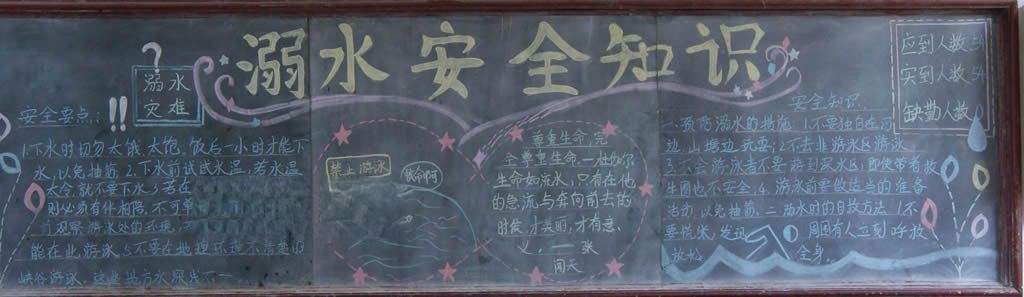 溺水安全知识
溺水
灾难
安全要点:
1.下水时切勿太饿、太饱。饭后一小时才能下
水,以免抽筋;2.下水前试试水温,若水温
太冷就不要下水;若在
则必须有伴相陪,不可单
前观察游水处的环境,
能在此游泳;5.不要在地理环境不清楚的
峡谷游泳。这些地方水深浅不一
禁止游泳
救命啊
尊重生命,完
全尊重生命,一
生命如流水,只有在他
的急流与奔向前去的
时候,才美丽,才有意
义。——张
闻天
安全知识:
一.预防溺水的措施 1.不要独自在河
边、山塘边玩耍;2.不去非游泳区游泳
3.不会游泳者不要游到深水区,即使带着救
生圈也不安全;4.游泳前要做适当的准备
活动,以免抽筋。二.溺水时的自救方法 1.不
要慌张,发现周围有人立刻呼救
放松全身。
应到人数:54
实到人数:54
缺勤人数: